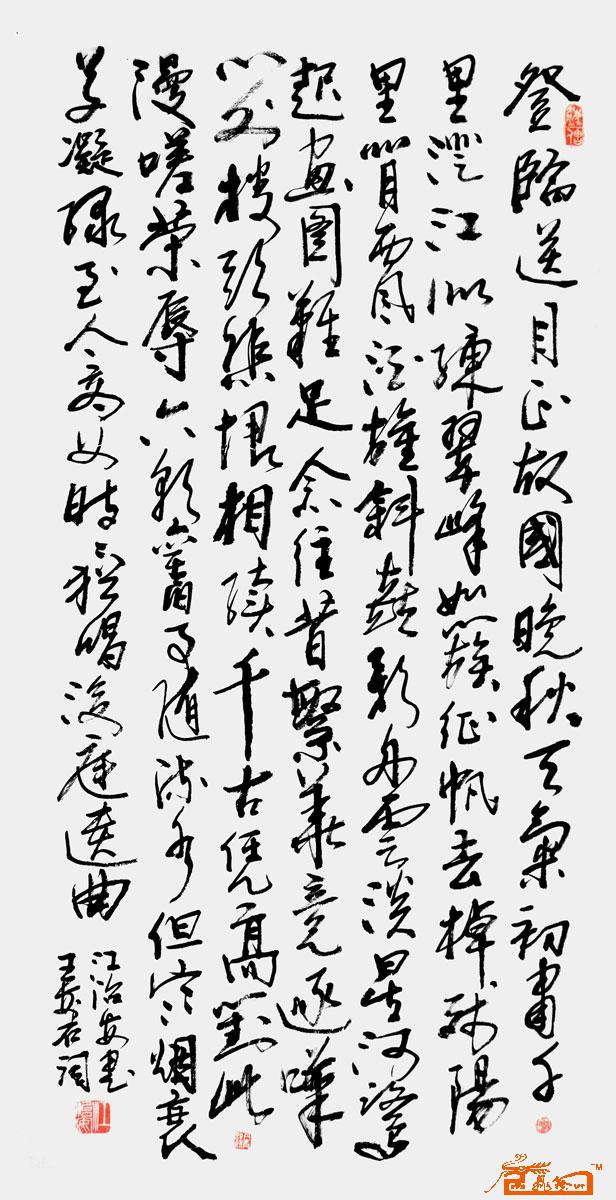 登臨送目正故國晚秋天氣初肅千
里澄江似練翠峰如簇征帆去棹殘陽
里背西風酒旗斜矗彩舟雲淡星河鷺
起畫圖難足念往昔繁華竞逐嘆
门外樓頭悲恨相續千古凭高對此
漫嗟榮辱六朝舊事随流水但寒烟衰
草凝绿至今商女時々猶唱後庭遗曲
江治安書
王安石詞